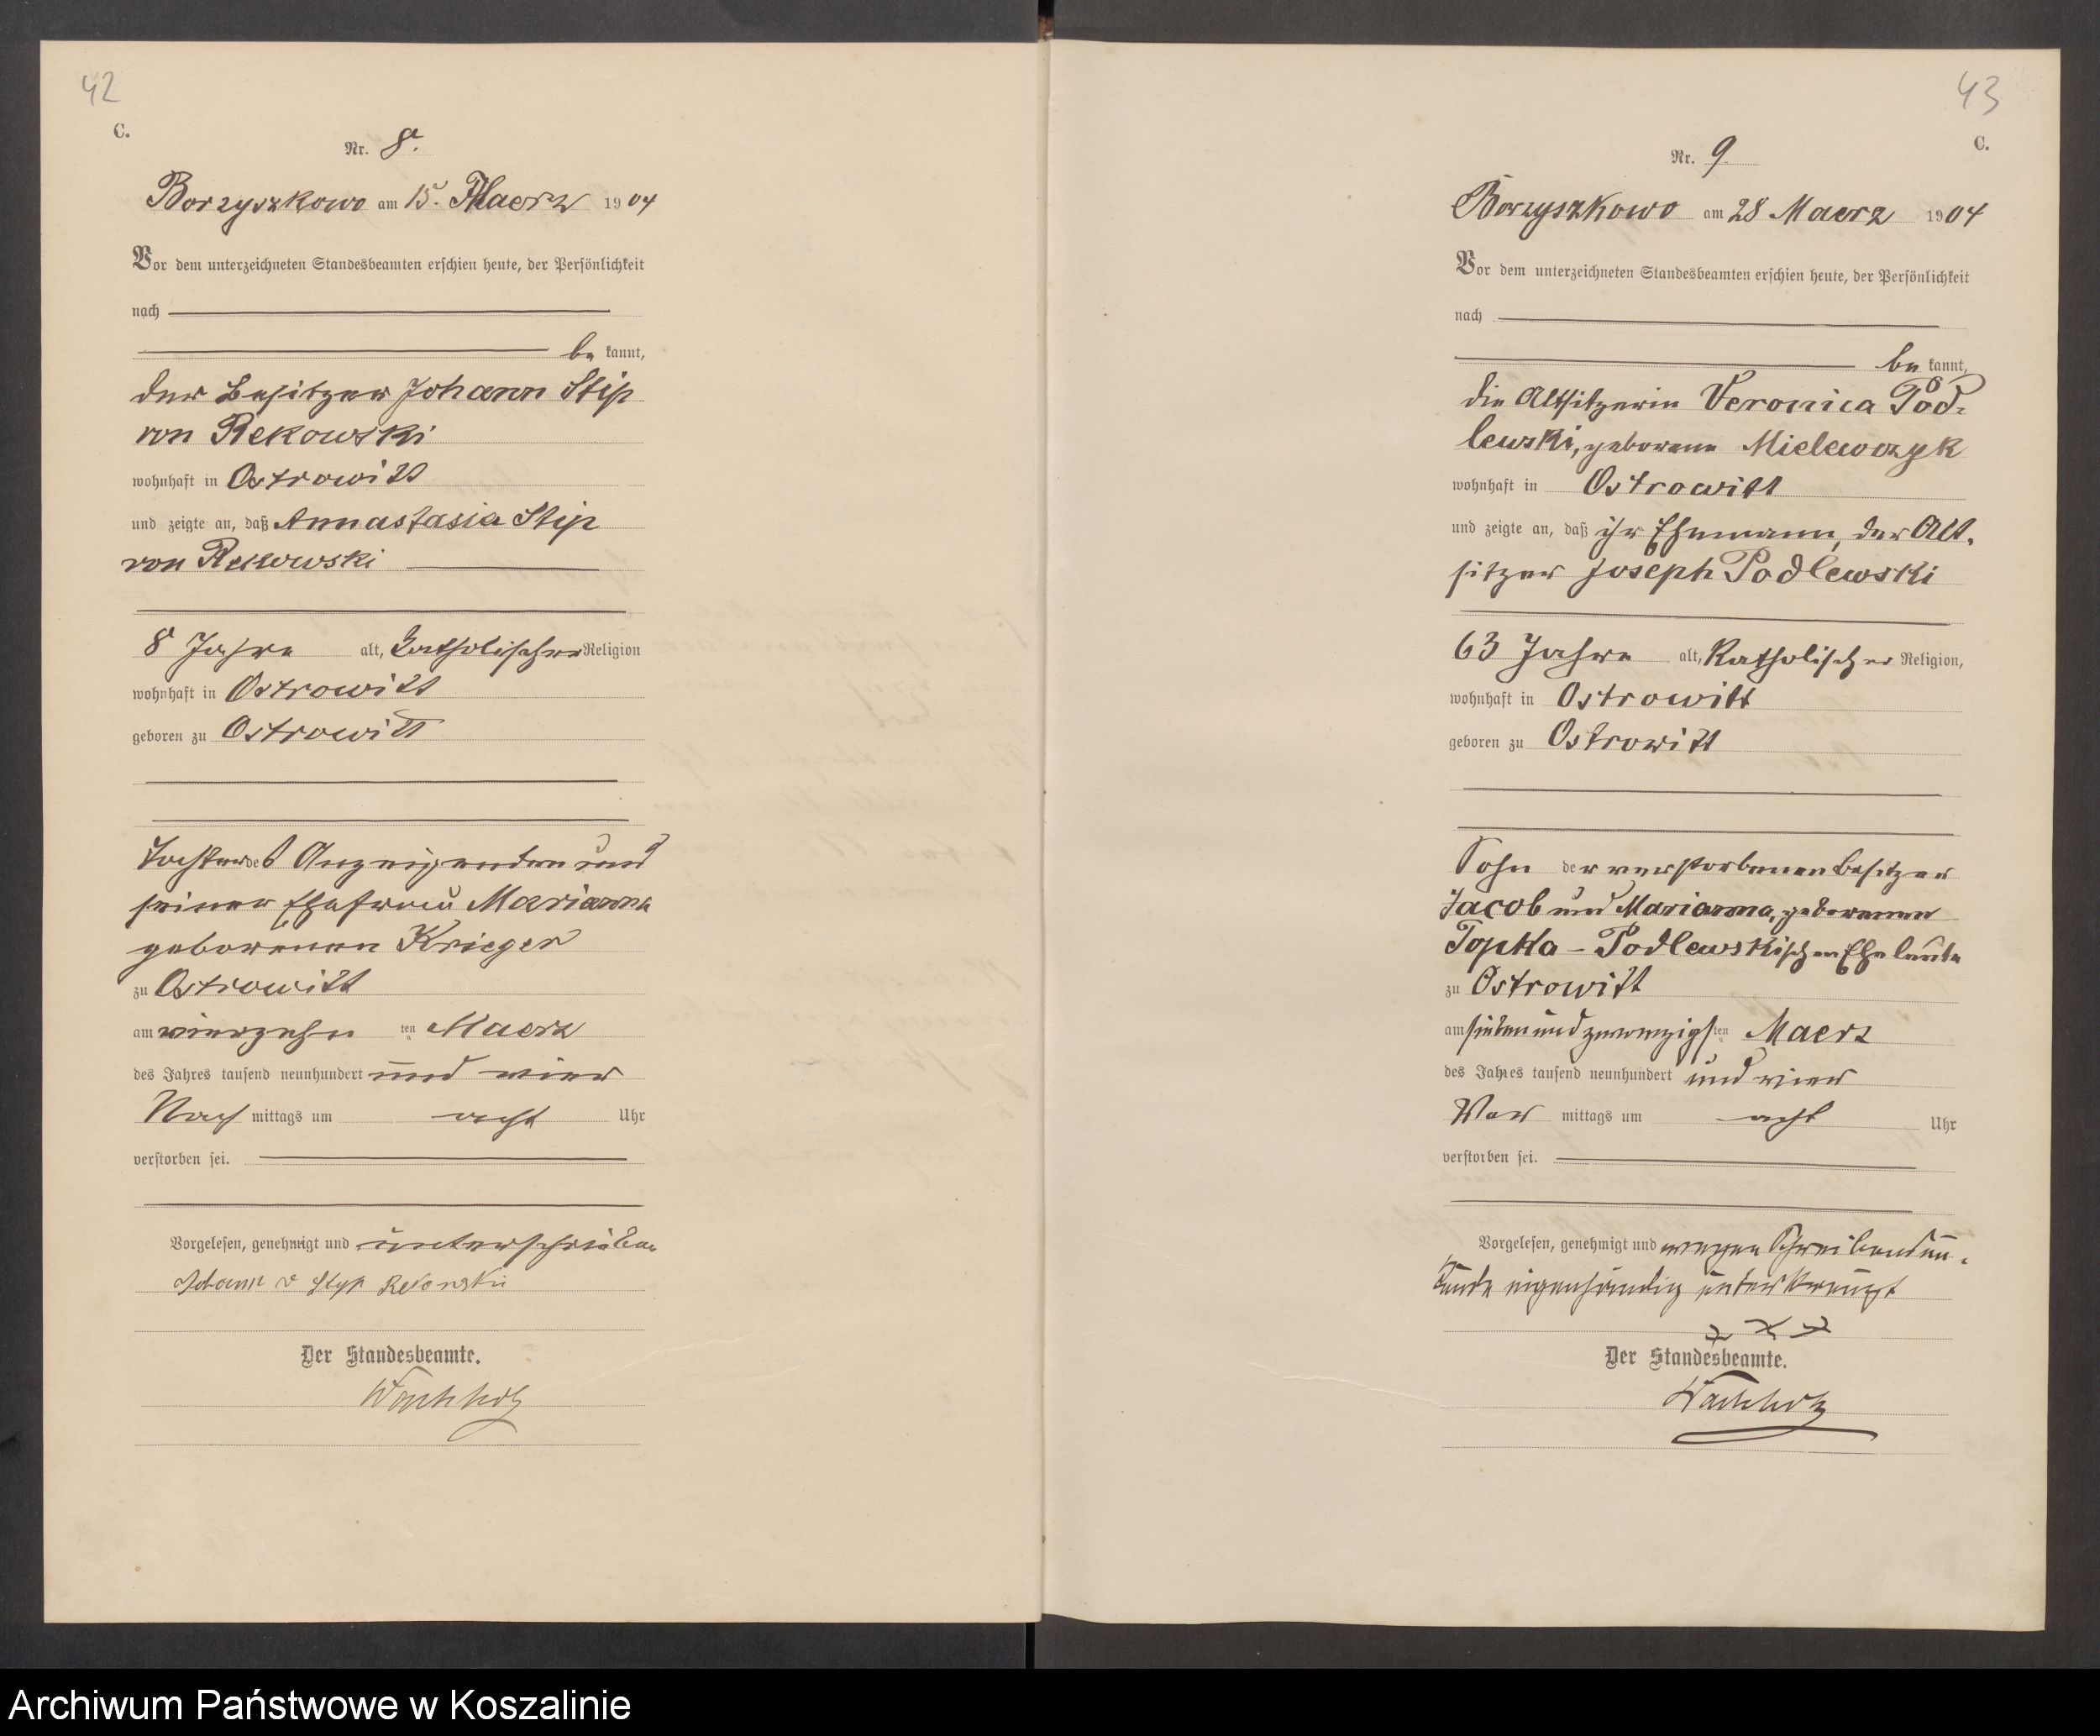 42
C.
Nr. 8.
Borzyszkowo am 15. Maerz 1904
Vor dem unterzeichneten Standesbeamten erschien heute, der Persönlichkeit
nach
be kannt,
der Besitzer Johann Stip
von Rekowski
wohnhaft in Ostrowitt
und zeigte an, daß Annastasia Stip
von Rekowski
8 Jahre alt, katholischer Religion
wohnhaft in Ostrowitt
geboren zu Ostrowitt
Tochter des Anzeigenden und
seiner Ehefrau Marianna
geborenen Krieger
zu Ostrowitt
am vierzehn ten Maerz
des Jahres tausend neunhundert und vier
Nach mittags um acht Uhr
verstorben sei.
Vorgelesen, genehmigt und unterschrieben
Johann v Styp Rekowski
Der Standesbeamte.
Wachholz
43
C.
Nr. 9.
Borzyszkowo am 28 Maerz 1904
Vor dem unterzeichneten Standesbeamten erschien heute, der Persönlichkeit
nach
be kannt,
die Altsitzerin Veronica Pod-
lewski, geborene Mielewczyk
wohnhaft in Ostrowitt
und zeigte an, daß ihr Ehemann, der Alt-
sitzer Joseph Podlewski
63 Jahre alt, katholischer Religion,
wohnhaft in Ostrowitt
geboren zu Ostrowitt
Sohn der verstorbenen Besitzer
Jacob und Marianna, geborenen
Topka - Podlewskischen Eheleute
zu Ostrowitt
am siebenundzwanzigsten Maerz
des Jahres tausend neunhundert und vier
Vor mittags um acht Uhr
verstorben sei.
Vorgelesen, genehmigt und wegen Schreibensun-
kunde eigenhändig unterkreuzt
x x x
Der Standesbeamte.
Wachholz
Archiwum Państwowe w Koszalinie